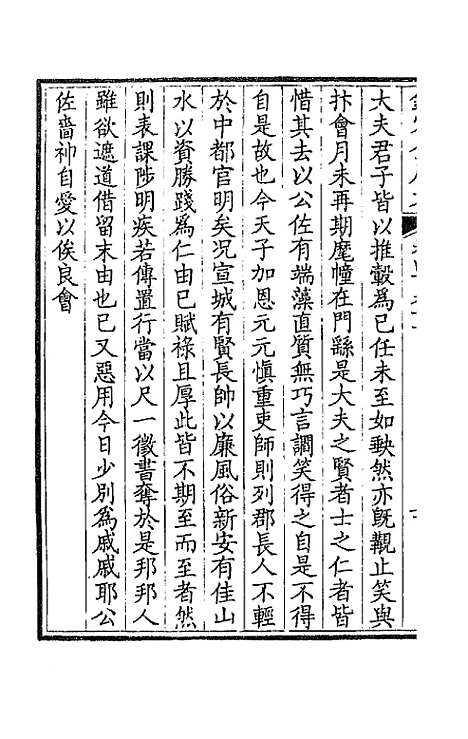 大夫君子皆以推轂爲已任未至如軮然亦旣觀止笑與
抃會月未再期麾幢在門繇是大夫之賢者士之仁者皆
惜其去以公佐有端藻直質無巧言調笑得之自是不得
自是故也今天子加恩元元愼重吏師則列郡長人不輕
於中都官明矣况宣城有賢長帥以廉風俗新安有佳山
水以資勝踐爲仁由已賦祿且厚此皆不期至而至者然
則表課陟明疾若傳置行當以尺一徵書奪於是邦邦人
雖欲遮道借留末由也已又惡用今日少別爲戚戚耶公
佐嗇神自愛以俟良會